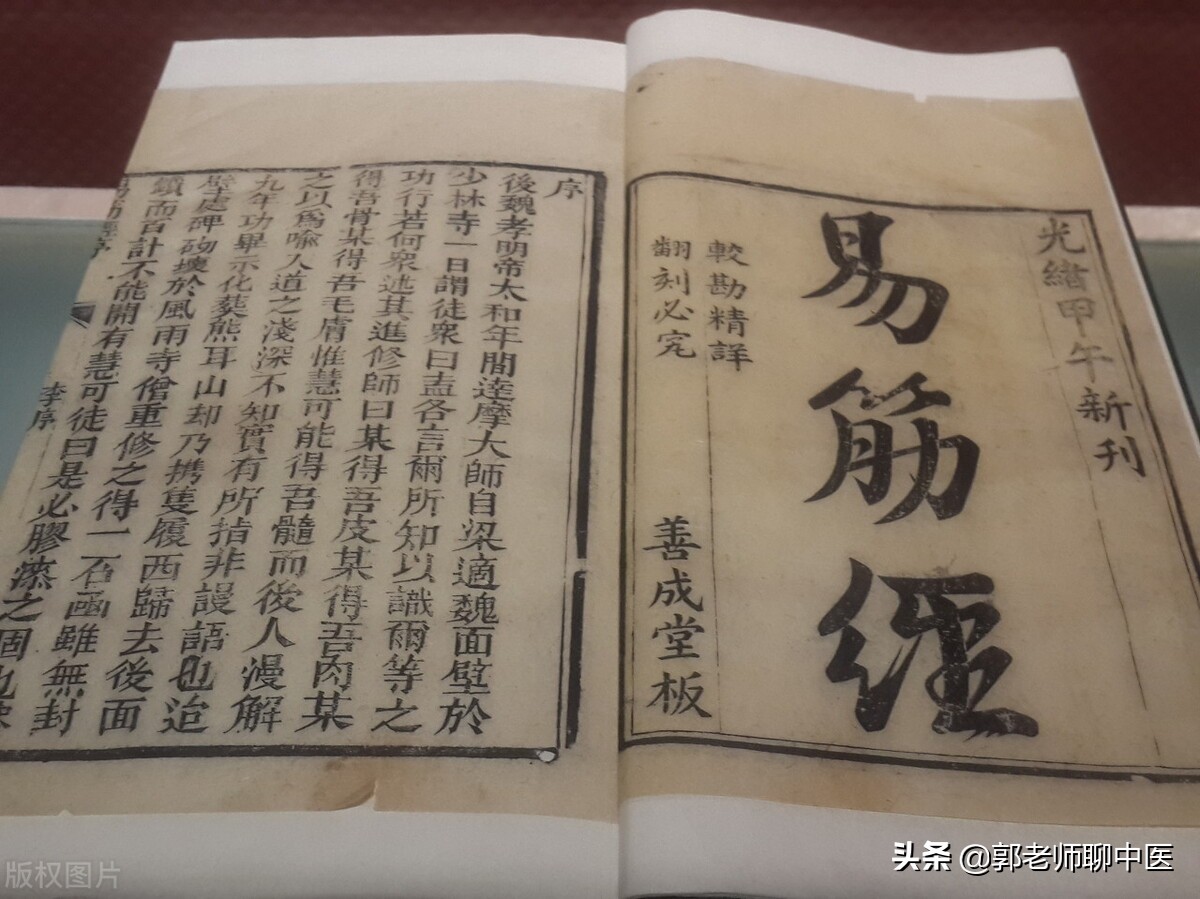 光緒甲午新刊
易筋經
較勘精詳
翻刻必究
善成堂板
序
後魏孝明帝太和年間達摩大師自梁適魏面壁於
少林寺一日謂徒衆曰盍各言爾所知以識爾等之
功行若何衆述其進修師曰某得吾皮某得吾肉某
得吾骨某得吾毛膚惟慧可能得吾髓而後人漫解
之以爲喻人道之淺深不知實有所指非謾語也迨
九年功畢示化葬熊耳山却乃携隻履西歸去後面
壁處碑砌壞於風雨寺僧重修之得一石函雖無封
鎖而百計不能開有慧可徒曰是必膠漆之固也
李序
版权图片
头条 @郭老师聊中医